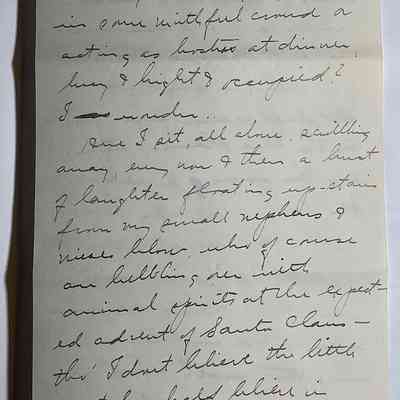 in some mirthful crowd or
acting as hostess at dinner,
busy & bright & occupied?
I wonder.
Here I sit, all alone, scribbling
away, every now & then a burst
of laughter floating up-stairs
from my small nephews &
nieces below, who of course
are bubbling over with
animal spirits at the expect-
ed advent of Santa Claus –
tho' I don't believe the little
believe in